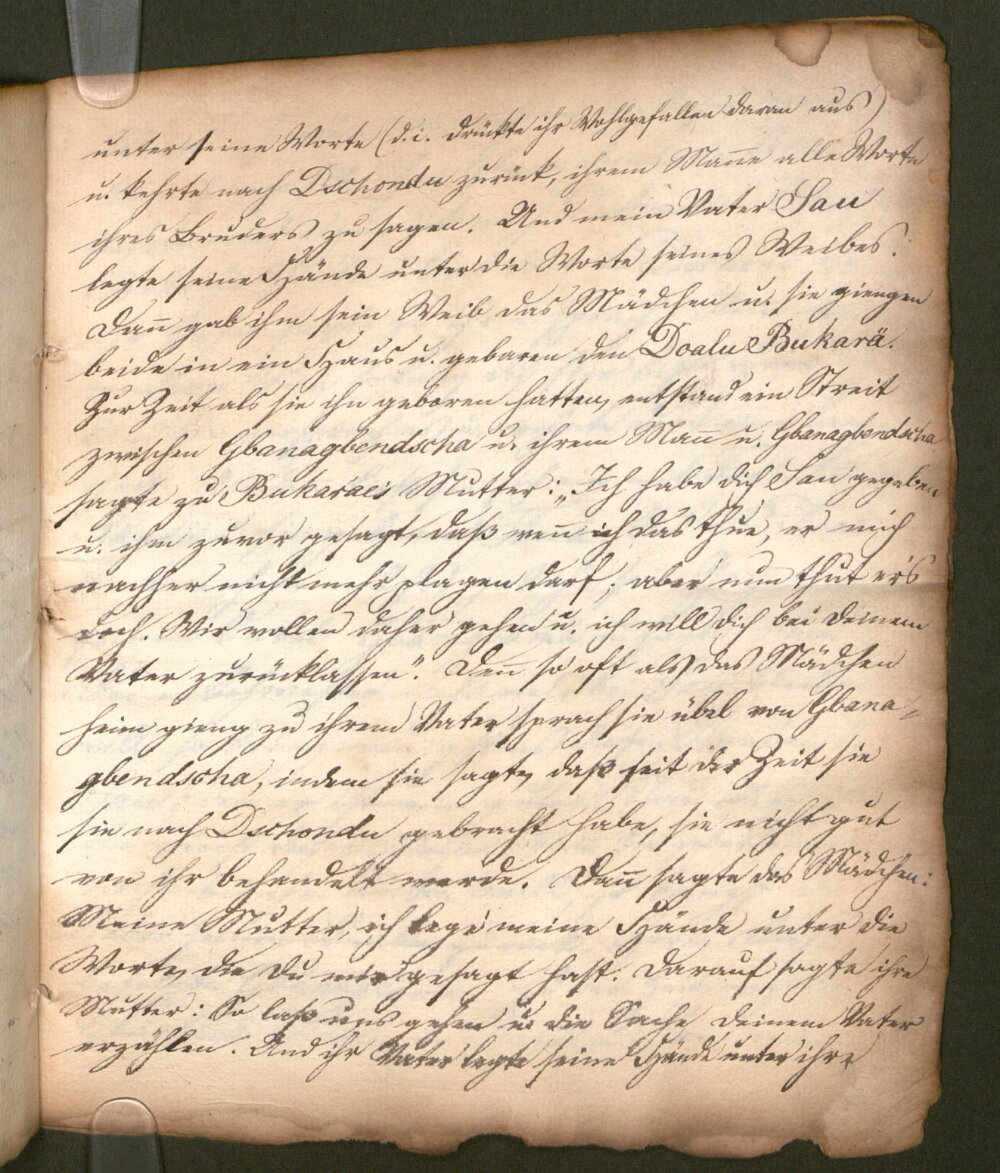 unter seine Worte (d.i. drückte ihr Wohlgefallen daran aus)
u. kehrte nach Dschondu zurück, ihrem Mañe alle Worte
ihres Bruders zu sagen. Und mein Vater Sau
legte seine Hände unter die Worte seines Weibes.
Dañ gab ihm sein Weib das Mädchen u. sie giengen
beide in ein Haus u. gebaren den Doalu Bukarä.
Zur Zeit als sie ihn geboren hatten, entstand ein Streit
zwischen Gbanagbendscha u. ihrem Mañ u. Gbanagbendscha
sagte zu Bukaraes Mutter: „Ich habe dich Sau gegeben
u. ihm zuvor gesagt, daß weñ ich das thue, er mich
nachher nicht mehr plagen darf; aber nun thut er's
doch. Wir wollen daher gehen u. ich will dich bei deinem
Vater zurücklassen." Deñ so oft als das Mädchen
heim gieng zu ihrem Vater sprach sie übel von Gbana-
gbendscha, indem sie sagte, daß seit der Zeit sie
sie nach Dschondu gebracht habe, sie nicht gut
von ihr behandelt werde. Dañ sagte das Mädchen:
Meine Mutter, ich lege meine Hände unter die
Worte, die du mir gesagt hast. Darauf sagte ihre
Mutter: So laß uns gehen u. die Sache deinem Vater
erzählen. Und ihr Vater legte seine Hände unter ihre